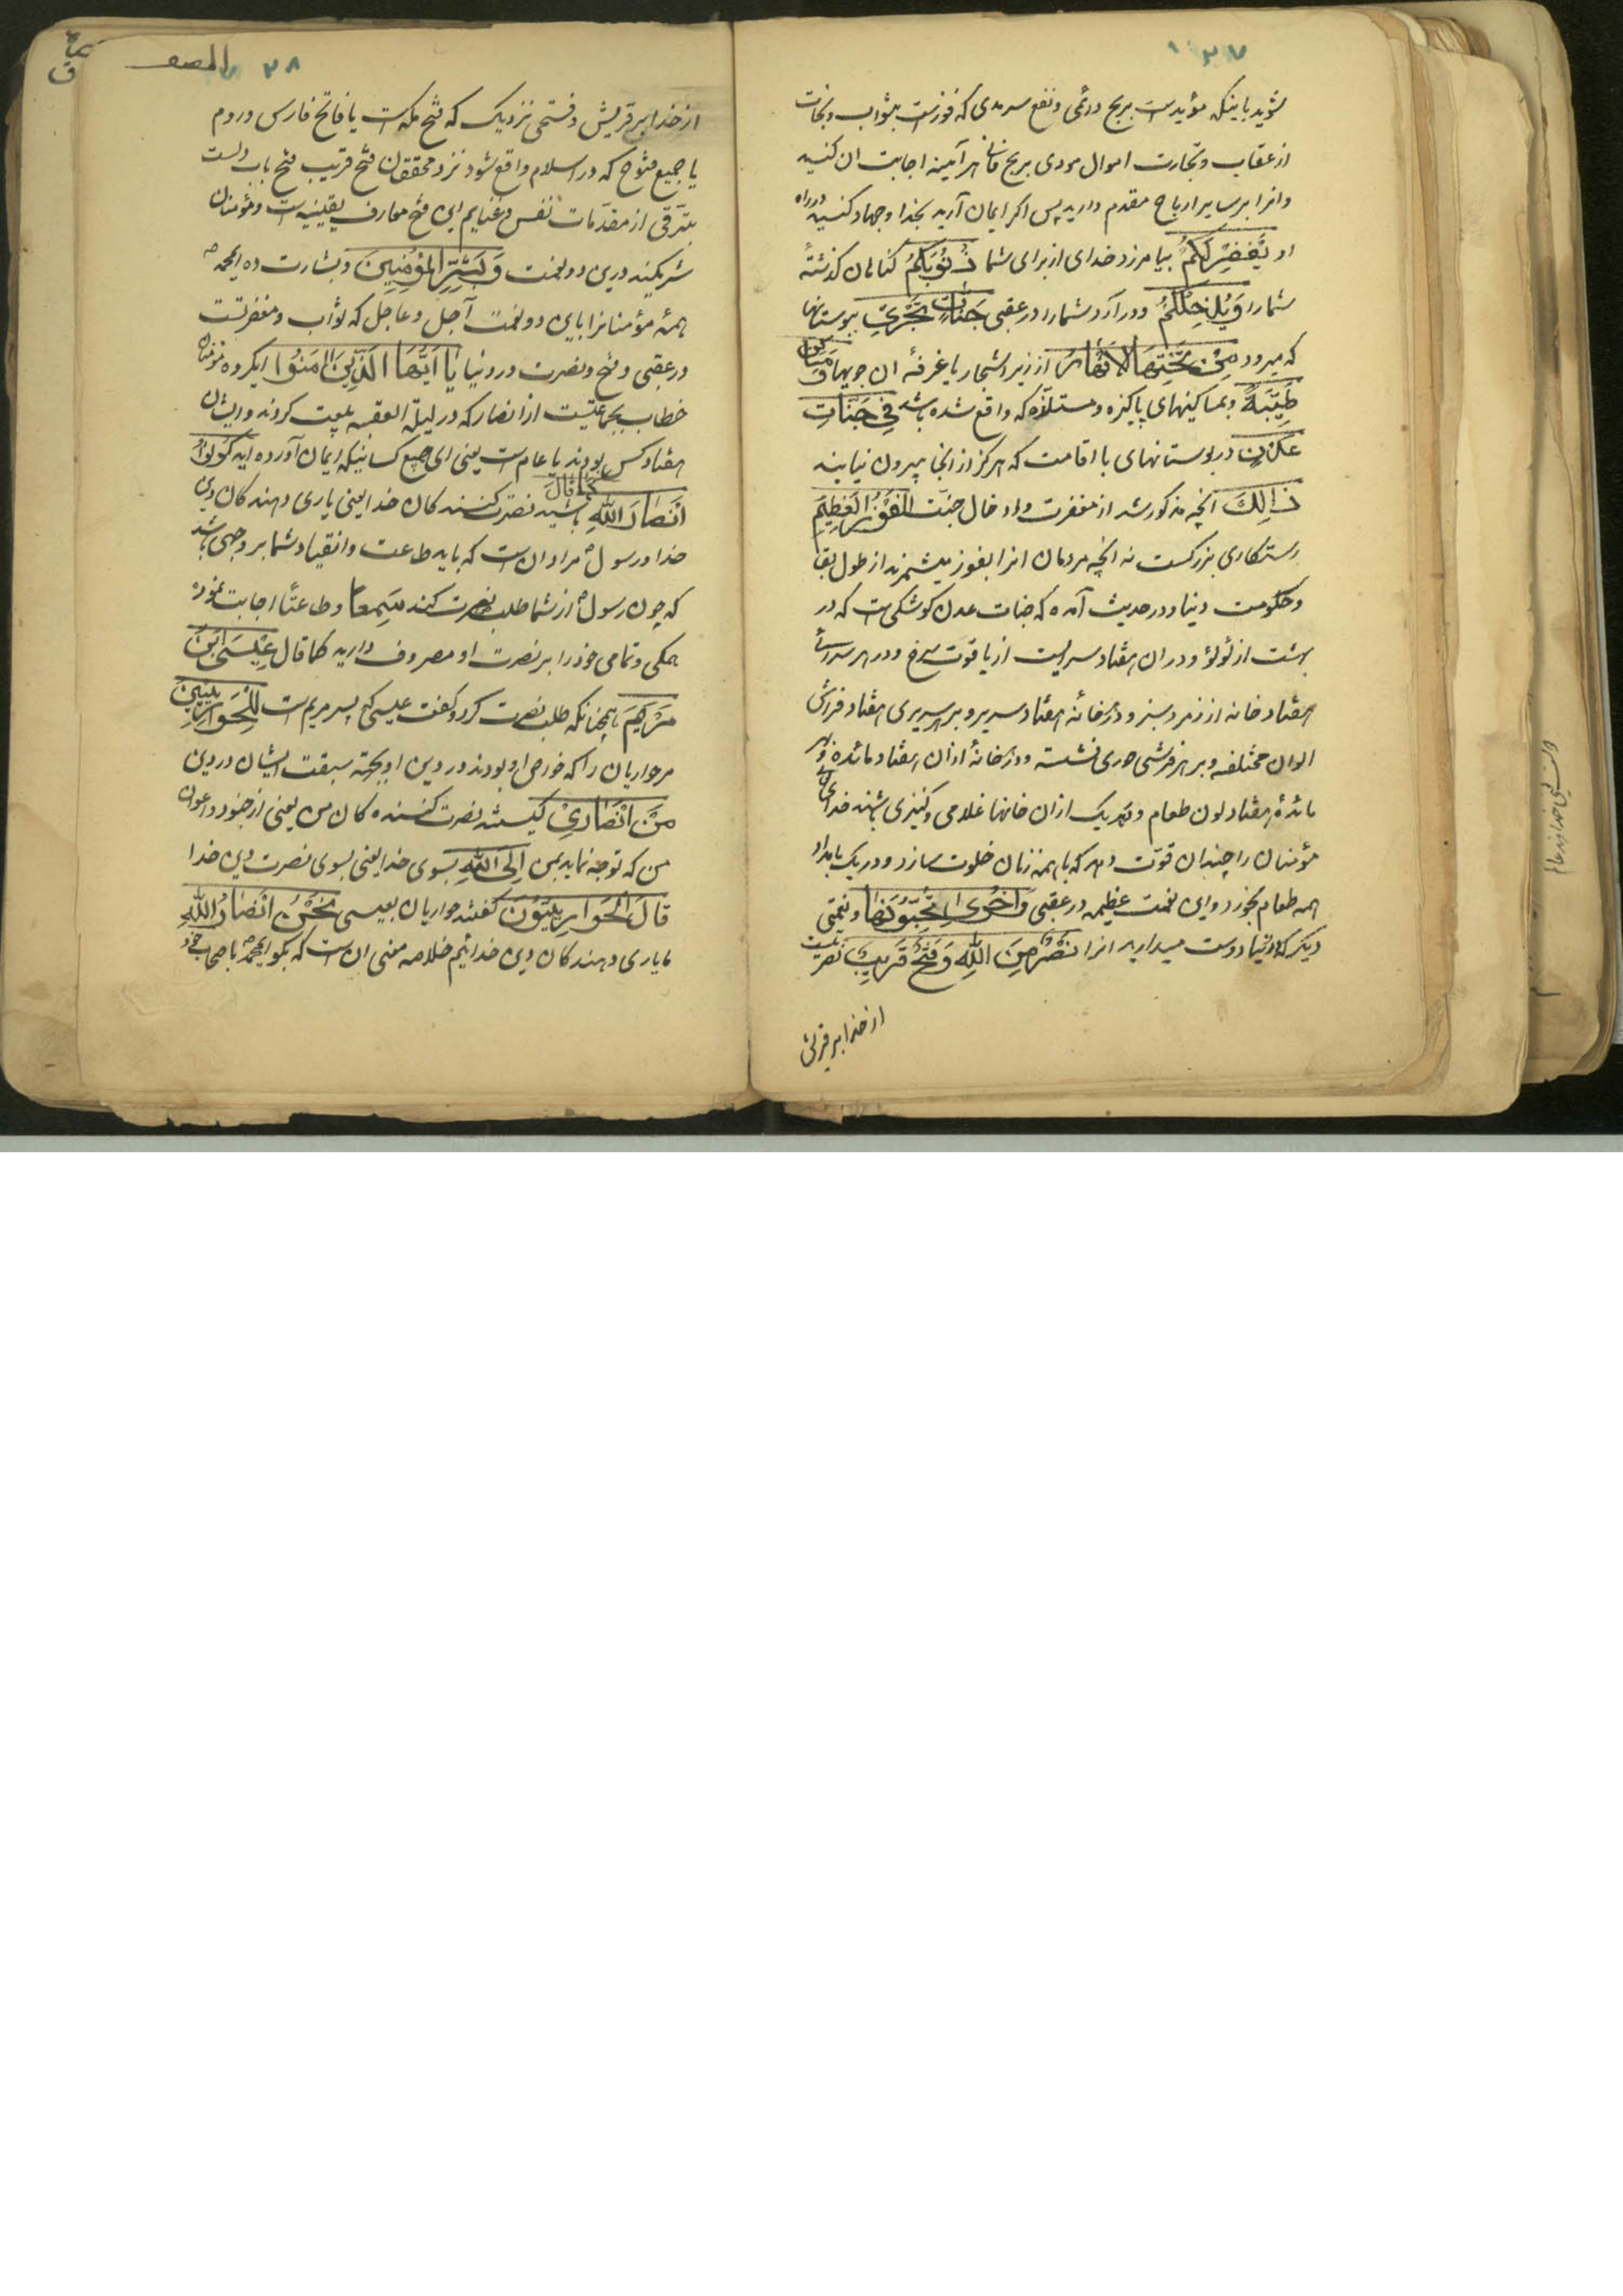 ۱۳۷
شوید باینکه مؤید است بربح دائمی و نفع سرمدی که فوزست بثواب و نجات
از عقاب و تجارت اموال مودی بربح فانی هر آینه اجابت ان کنید
و انرا بر سایر ارباح مقدم دارید پس اکر ایمان آرید بخدا و جهاد کنید در راه
او یَغْفِرْ لَکُمْ بیامرزد خدای از برای شما ذُنُوبَکُمْ کناهان کذشتهٔ
شمارا وَیُدْخِلْکُمْ و در آرد شمارا در عقبی جَنَّاتٍ تَجْرِی ببوستانها
که میرود مِنْ تَحْتِهَا الْاَنْهَارُ از زیر اشجار یا غرفهٔ ان جویها وَمَسَاکِنَ
طَیِّبَةً و بمساکینهای پاکیزه و مستلذه که واقع شده باشد فِی جَنَّاتِ
عَدْنٍ در بوستانهای با اقامت که هرکز از انجا بیرون نیایند
ذٰلِکَ انچه مذکور شد از مغفرت و ادخال جنت الْفَوْزُ الْعَظِیمُ
رستکاری بزرکست نه انچه مردمان انرا بفوز میشمرند از طول بقا
و حکومت دنیا و در حدیث آمده که جنات عدن کوشکی است که در
بهشت از لؤلؤ و در ان هفتاد سرایست از یاقوت سرخ و در هر سرائی
هفتاد خانه از زمرد سبز و در هر خانه هفتاد سریر و بر هر سریری هفتاد فراش
الوان مختلفه و بر هر فرشی حوری نشسته و در هر خانهٔ از ان هفتاد مائده و بر هر
مائدهٔ هفتاد لون طعام و بهر یک از ان خانها غلامی و کنیزی باشند خدای تعالی
مؤمنان را چندان قوت دهد که با همه زنان خلوت سازد و در یک بامداد
همه طعام بخورد و این نعمت عظیمه در عقبی وَاُخْرٰی تُحِبُّونَهَا و نعمتی
دیکر که در دنیا دوست میدارید انرا نَصْرٌ مِنَ اللهِ وَفَتْحٌ قَرِیبٌ نصرتیست
از خدا بر قریش
۲۸
الصف
از خدا بر قریش و فتحی نزدیک که فتح مکه است یا فاتح فارس و روم
یا جمیع فتوح که در اسلام واقع شود نزد محققان فتح قریب فتح باب دلست
بترقی از مقدمات نفس و غنایم این فتح معارف یقینیه است و مؤمنان
شریکیند درین دو نعمت وَبَشِّرِ الْمُؤْمِنِینَ و بشارت ده ایمحمد ص
همهٔ مؤمنانرا باین دو نعمت آجل و عاجل که ثواب و مغفرتست
در عقبی و فتح و نصرت در دنیا یَا اَیُّهَا الَّذِینَ اٰمَنُوا ایکروه مؤمنان
خطاب بجماعتیست از انصار که در لیلة العقبه بیعت کردند و ایشان
هفتاد کس بودند یا عام است یعنی ای جمیع کسانیکه ایمان آورده اید کُونُوا
اَنْصَارَ اللهِ باشید نصرت کنندکان خدا یعنی یاری دهندکان دین کَمَا قَالَ
خدا و رسول ص مراد ان است که باید طاعت و انقیاد شما بر وجهی باشد
که چون رسول ص از شما طلب نصرت کند سَمِعنا و طاعتًا اجابت نموده
همکی و تمامی خود را بر نصرت او مصروف دارید کما قال عِیسَی ابْنُ
مَرْیَمَ همچنانکه طلب نصرت کرد و کفت عیسی که پسر مریم است لِلْحَوَارِیِّینَ
مر حواریان را که خواص او بودند در دین او بجهة سبقت ایشان در دین
مَنْ اَنْصَارِی کیستند نصرت کننده کان من یعنی از جنود و اعوان
من که توجه نماید بمن اِلَی اللهِ بسوی خدا یعنی بسوی نصرت دین خدا
قَالَ الْحَوَارِیُّونَ کفتند حواریان بعیسی نَحْنُ اَنْصَارُ اللهِ
ما یاری دهندکان دین خدائیم خلاصه معنی ان است که بکو ایمحمد ص باصحاب خود